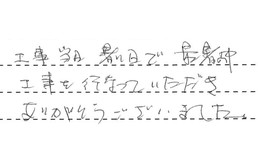 工事当日 暑い日で 最暑中
工事を行なっていただき
ありがとうございました。